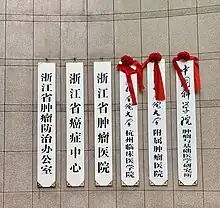 浙江省肿瘤防治办公室
浙江省癌症中心
浙江省肿瘤医院
院大学杭州临床医学院
院大学附属肿瘤医院
中国科学院肿瘤与基础医学研究所